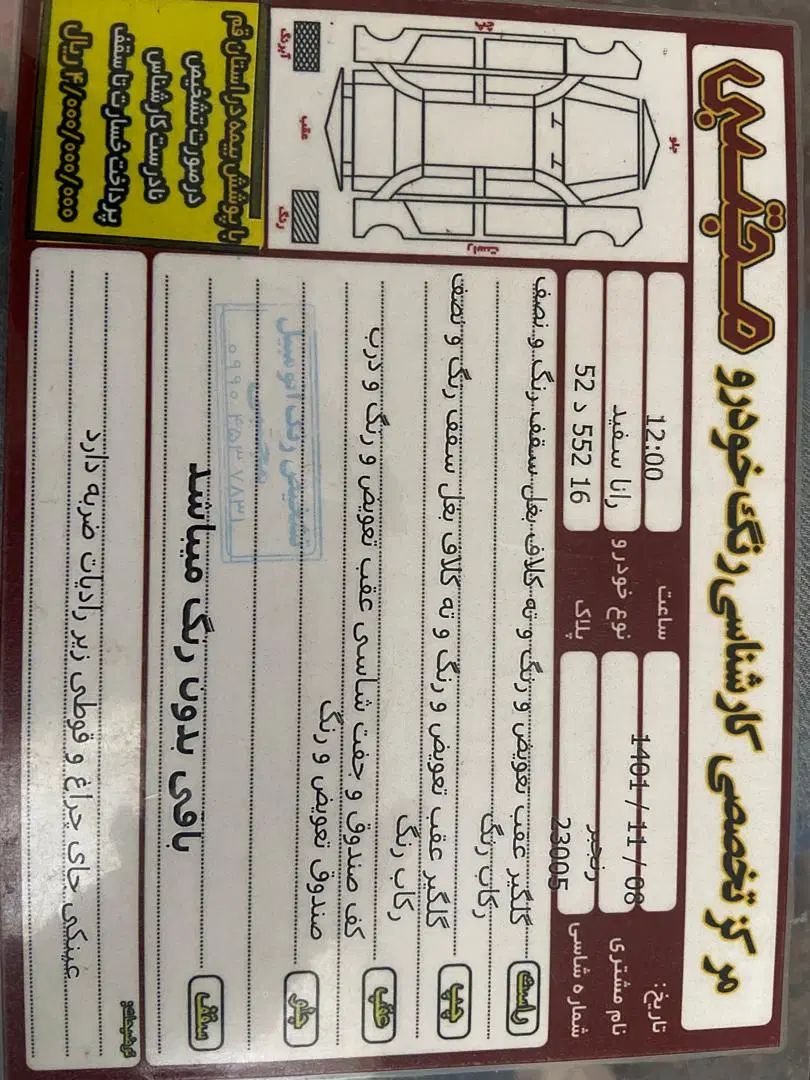 مرکز تخصصی کارشناسی رنگ خودرو مجتبی
تاریخ: 1401 / 11 / 08
ساعت 12:00
نام مشتری رنجبر
نوع خودرو رانا سفید
شماره شاسی 23005
پلاک 52 د 552 16
جلو
چپ
راست
عقب
آبرنگ
رنگ
راست گلگیر عقب تعویض و رنگ و ته کلاف بغل سقف رنگ و نصف
رکاب رنگ
چپ گلگیر عقب تعویض و رنگ و ته کلاف بغل سقف رنگ و نصف
رکاب رنگ
عقب کف صندوق و جفت شاسی عقب تعویض و رنگ و درب
صندوق تعویض و رنگ
جلو
سقف باقی بدون رنگ میباشد
تشخیص رنگ اتومبیل
مجتبی
۰۹۹۰ ۴۵۳ ۷۸۳۱
عینکی جای چراغ و قوطی زیر رادیات ضربه دارد
با پوشش بیمه در استان قم
در صورت تشخیص
نادرست کارشناس
پرداخت خسارت تا سقف
۴/۰۰۰/۰۰۰/۰۰۰ ریال